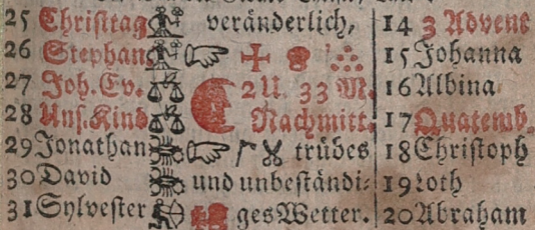 25 Christtag veränderlich, 14 3 Advent
26 Stephan 15 Johanna
27 Joh. Ev. 2 U. 33 M. 16 Albina
28 Uns. Kind Nachmitt. 17 Quatemb.
29 Jonathan trübes 18 Christoph
30 David und unbeständi- 19 Loth
31 Sylvester ges Wetter. 20 Abraham